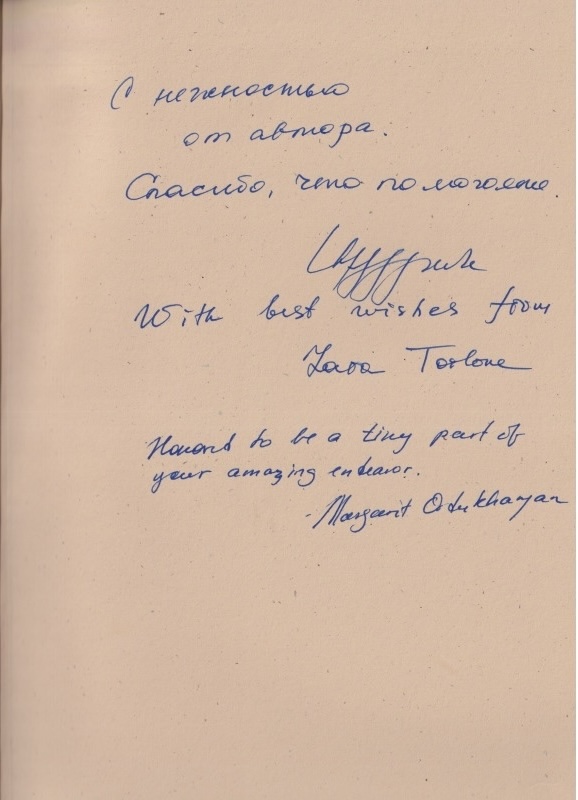 С нежностью
от автора.
Спасибо, что помогаете
With best wishes from
Honored to be a tiny part of
your amazing endeavor.
- Margarit Ordukhanyan